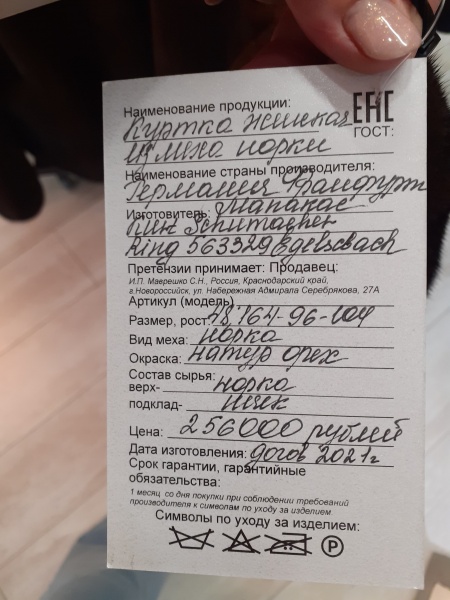 Наименование продукции:
EAC
Куртка женская
ГОСТ:
из меха норки
Наименование страны производителя:
Германия Франфурт
Изготовитель: Манакас
Schumacher
Ring 563329 Egelsbach
Претензии принимает: Продавец:
И.П. Маврешко С.Н., Россия, Краснодарский край,
г.Новороссийск, ул. Набережная Адмирала Серебрякова, 27А
Артикул (модель)
Размер, рост: 48 164-96-004
Вид меха: норка
Окраска: натур орех
Состав сырья:
верх- норка
подклад- шелк
Цена: 256000 рублей
Дата изготовления: 2021г
Срок гарантии, гарантийные
обязательства:
1 месяц со дня покупки при соблюдении требований
производителя к символам по уходу за изделием.
Символы по уходу за изделием:
P